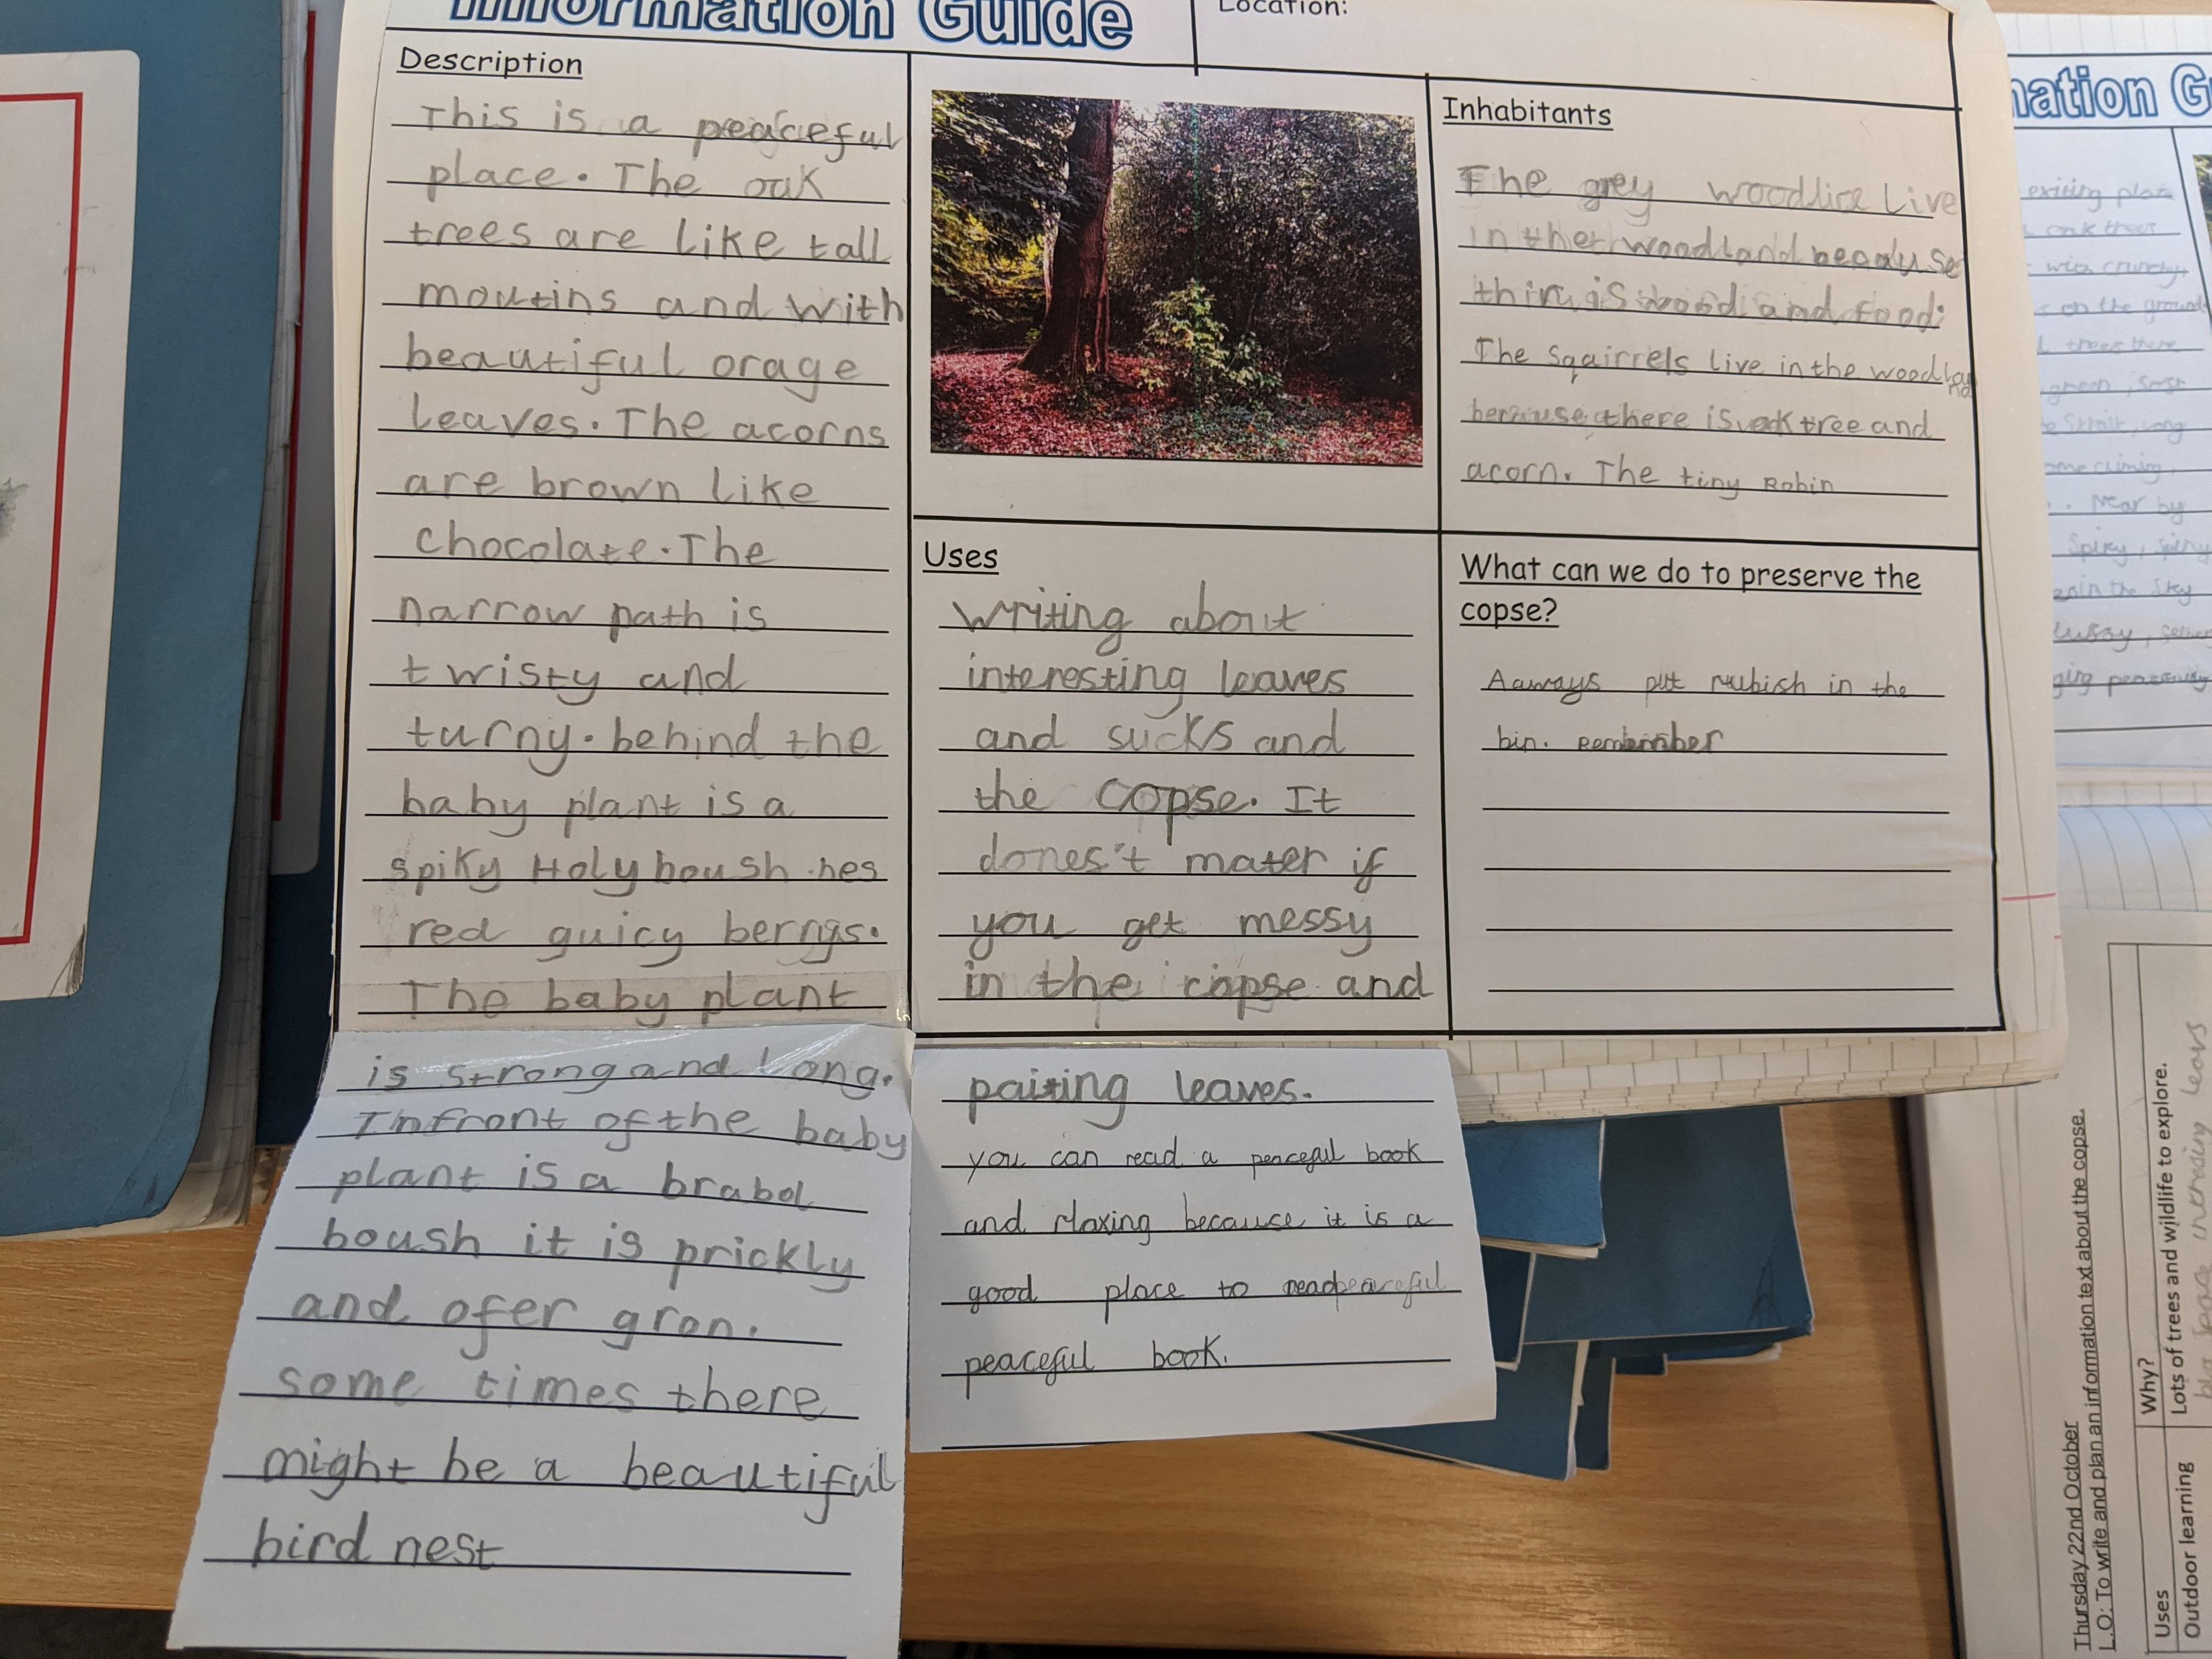 Information Guide
Location:
Description
This is a peaceful
place. The oak
trees are like tall
moutins and with
beautiful orage
leaves. The acorns
are brown like
chocolate. The
narrow path is
twisty and
turny. behind the
baby plant is a
spiky Holy boush hes
red guicy berrys.
The baby plant
is strong and long.
Infront of the baby
plant is a brabol
boush it is prickly
and ofer gron.
some times there
might be a beautiful
bird nest
Uses
writing about
interesting leaves
and sucks and
the copse. It
dones't mater if
you get messy
in the copse and
paiting leaves.
you can read a peacefull book
and rlaxing because it is a
good place to read peaceful
peaceful book.
Inhabitants
The grey woodlice live
in the woodland because
thir is wood and food.
The squirrels live in the woodland
because there is oak tree and
acorn. The tiny Robin
What can we do to preserve the
copse?
Aaways put rubish in the
bin. Remember
nation Gu
exiting plac
oak trees
with crunchy,
on the ground
trees there
green,
Near by
Spiky, spiny
in the sky
Thursday 22nd October
L.O: To write and plan an information text about the copse.
Uses
Why?
Outdoor learning
Lots of trees and wildlife to explore.